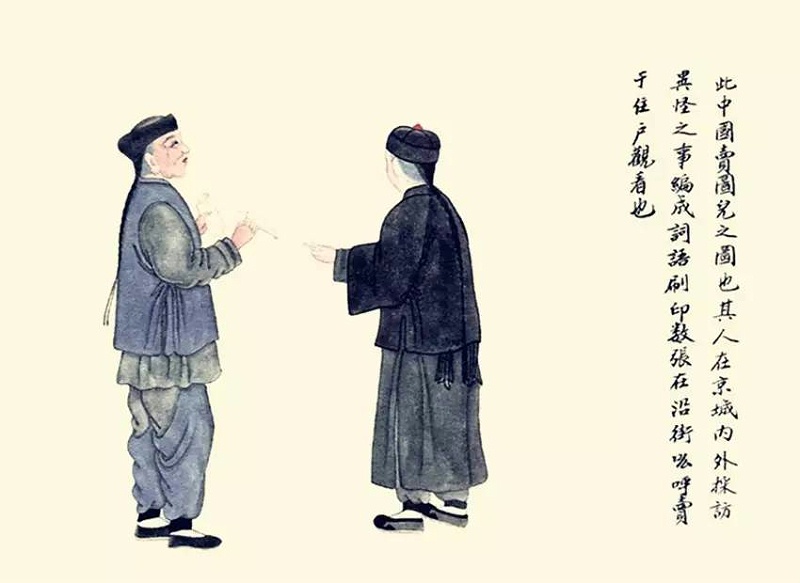 此中國賣圖兒之圖也其人在京城内外採訪
異怪之事編成詞語刷印数張在沿街吆呼賣
于住戸觀看也